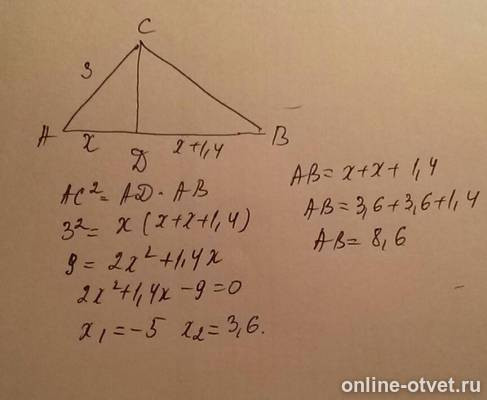 C
3
A x D x+1,4 B
AC² = AD · AB
3² = x (x+x+1,4)
9 = 2x²+1,4x
2x²+1,4x-9=0
x₁=-5 x₂=3,6.
AB=x+x+1,4
AB=3,6+3,6+1,4
AB=8,6
online-otvet.ru